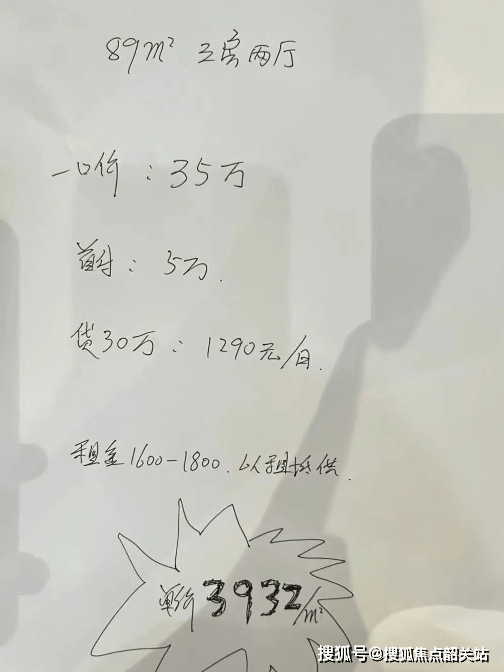 89m² 三房两厅
一口价：35万
首付：5万.
贷30万：1290元/月.
租金1600-1800.以租抵供.
单价3932/m²
搜狐号@搜狐焦点韶关站